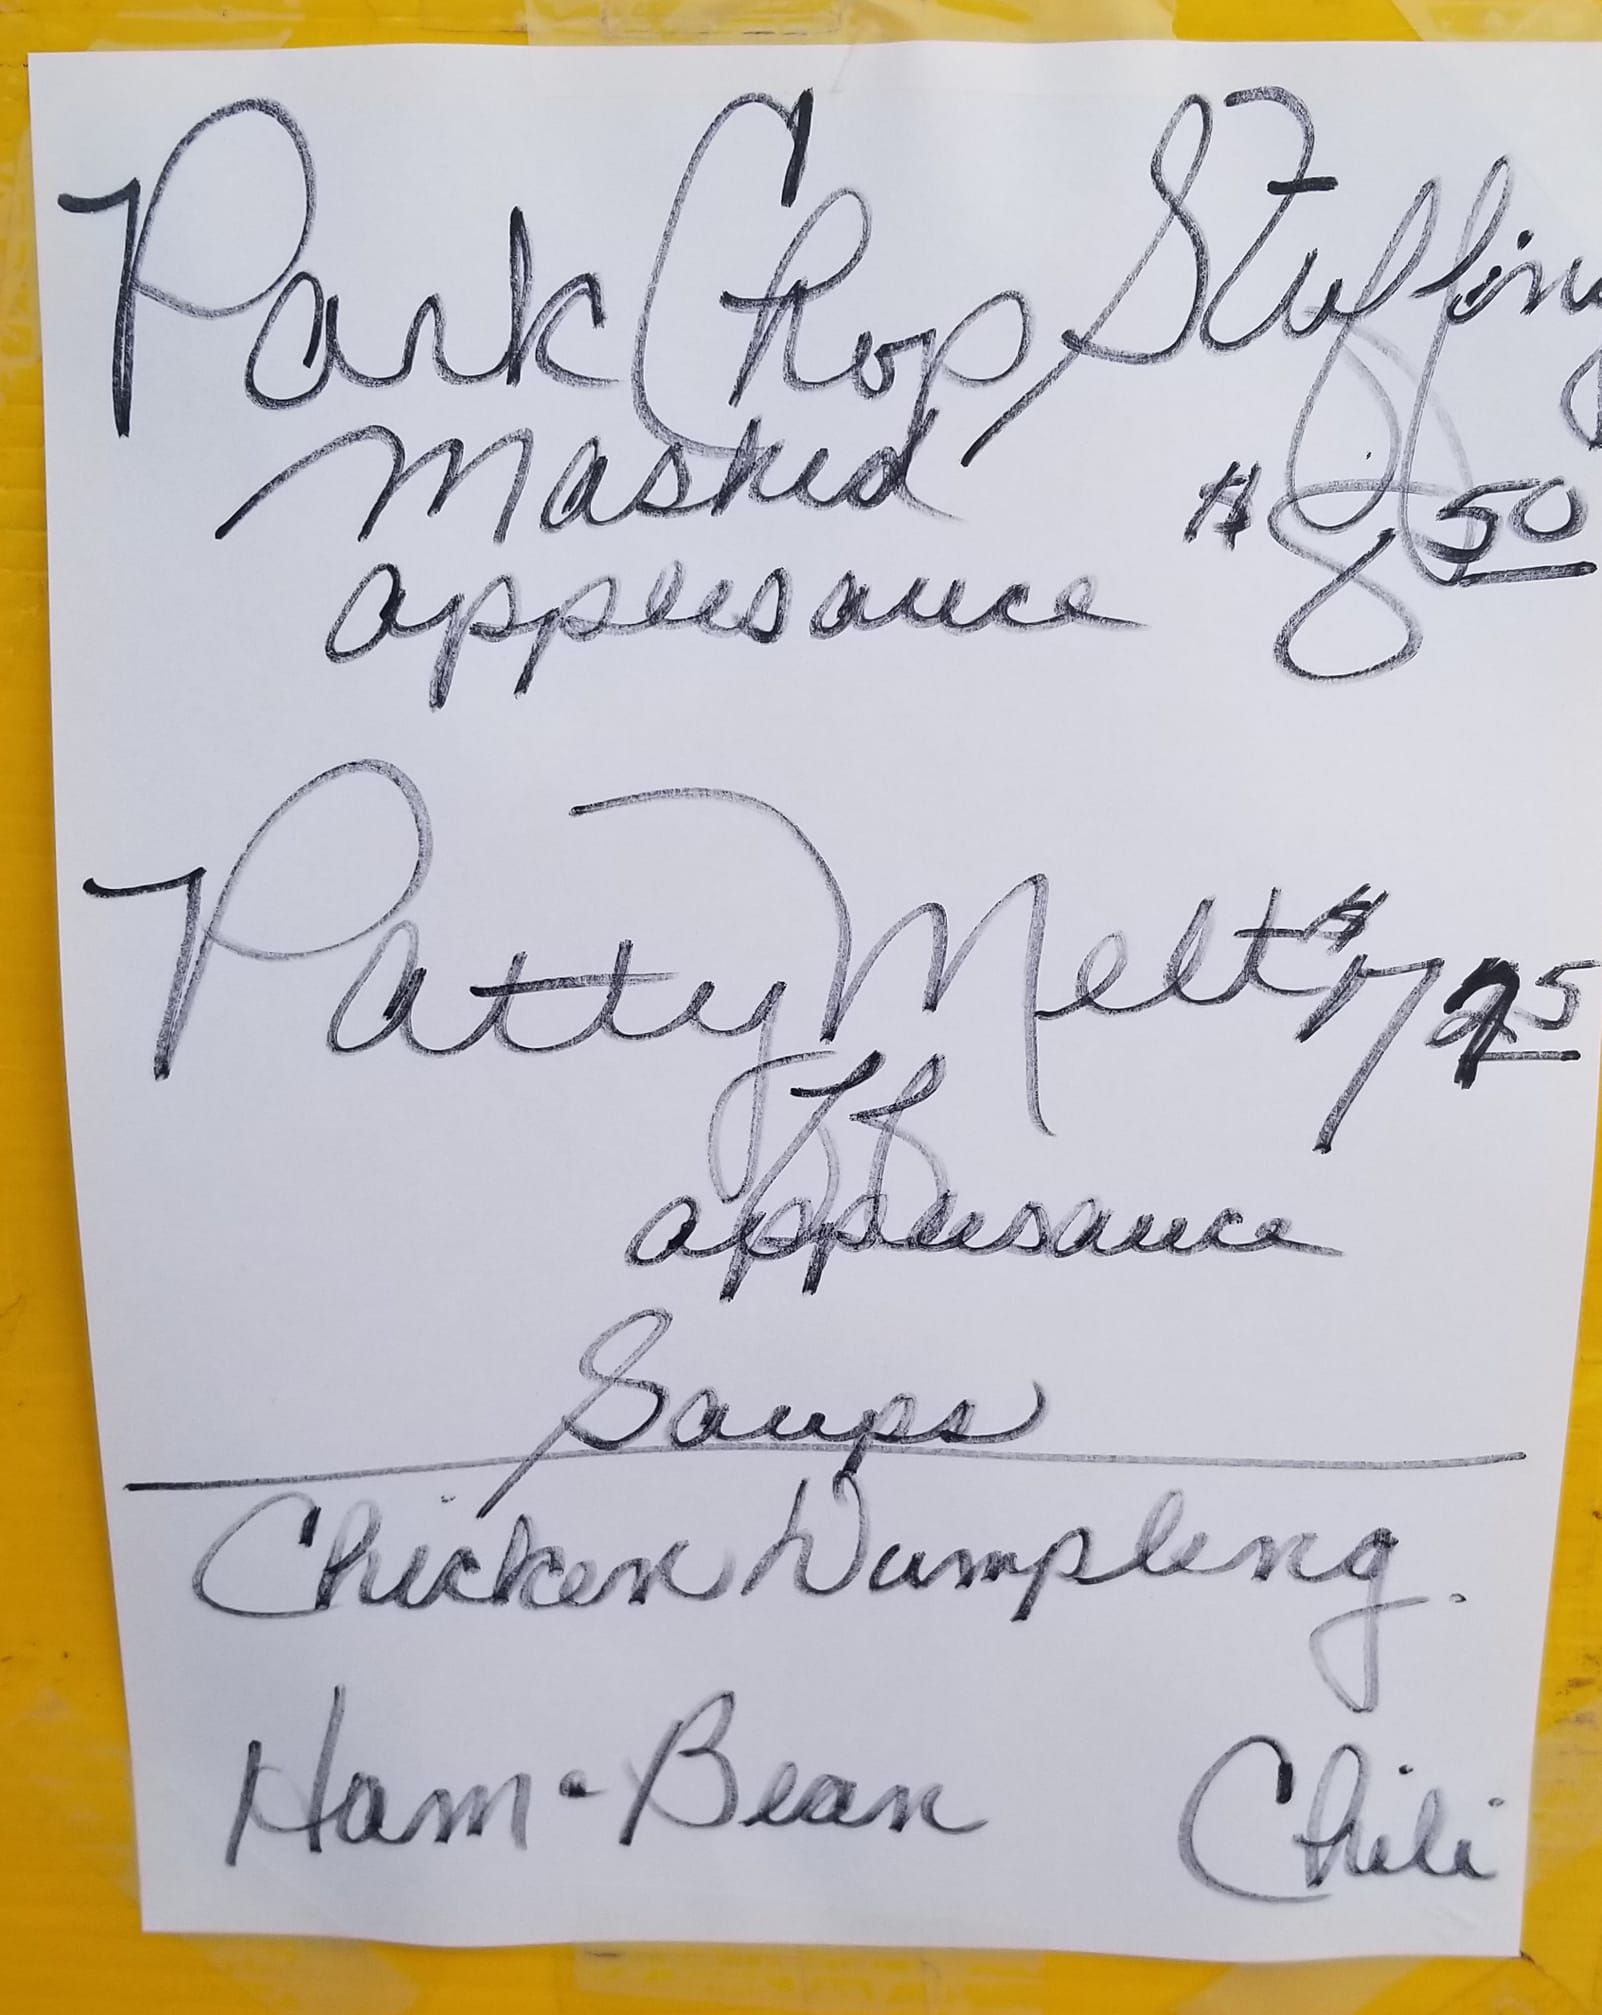 Pork Chop, Stuffing
Mashed
applesauce $8.50
Patty Melt $7
FF
applesauce
Soups
Chicken Dumpling.
Ham-Bean Chili